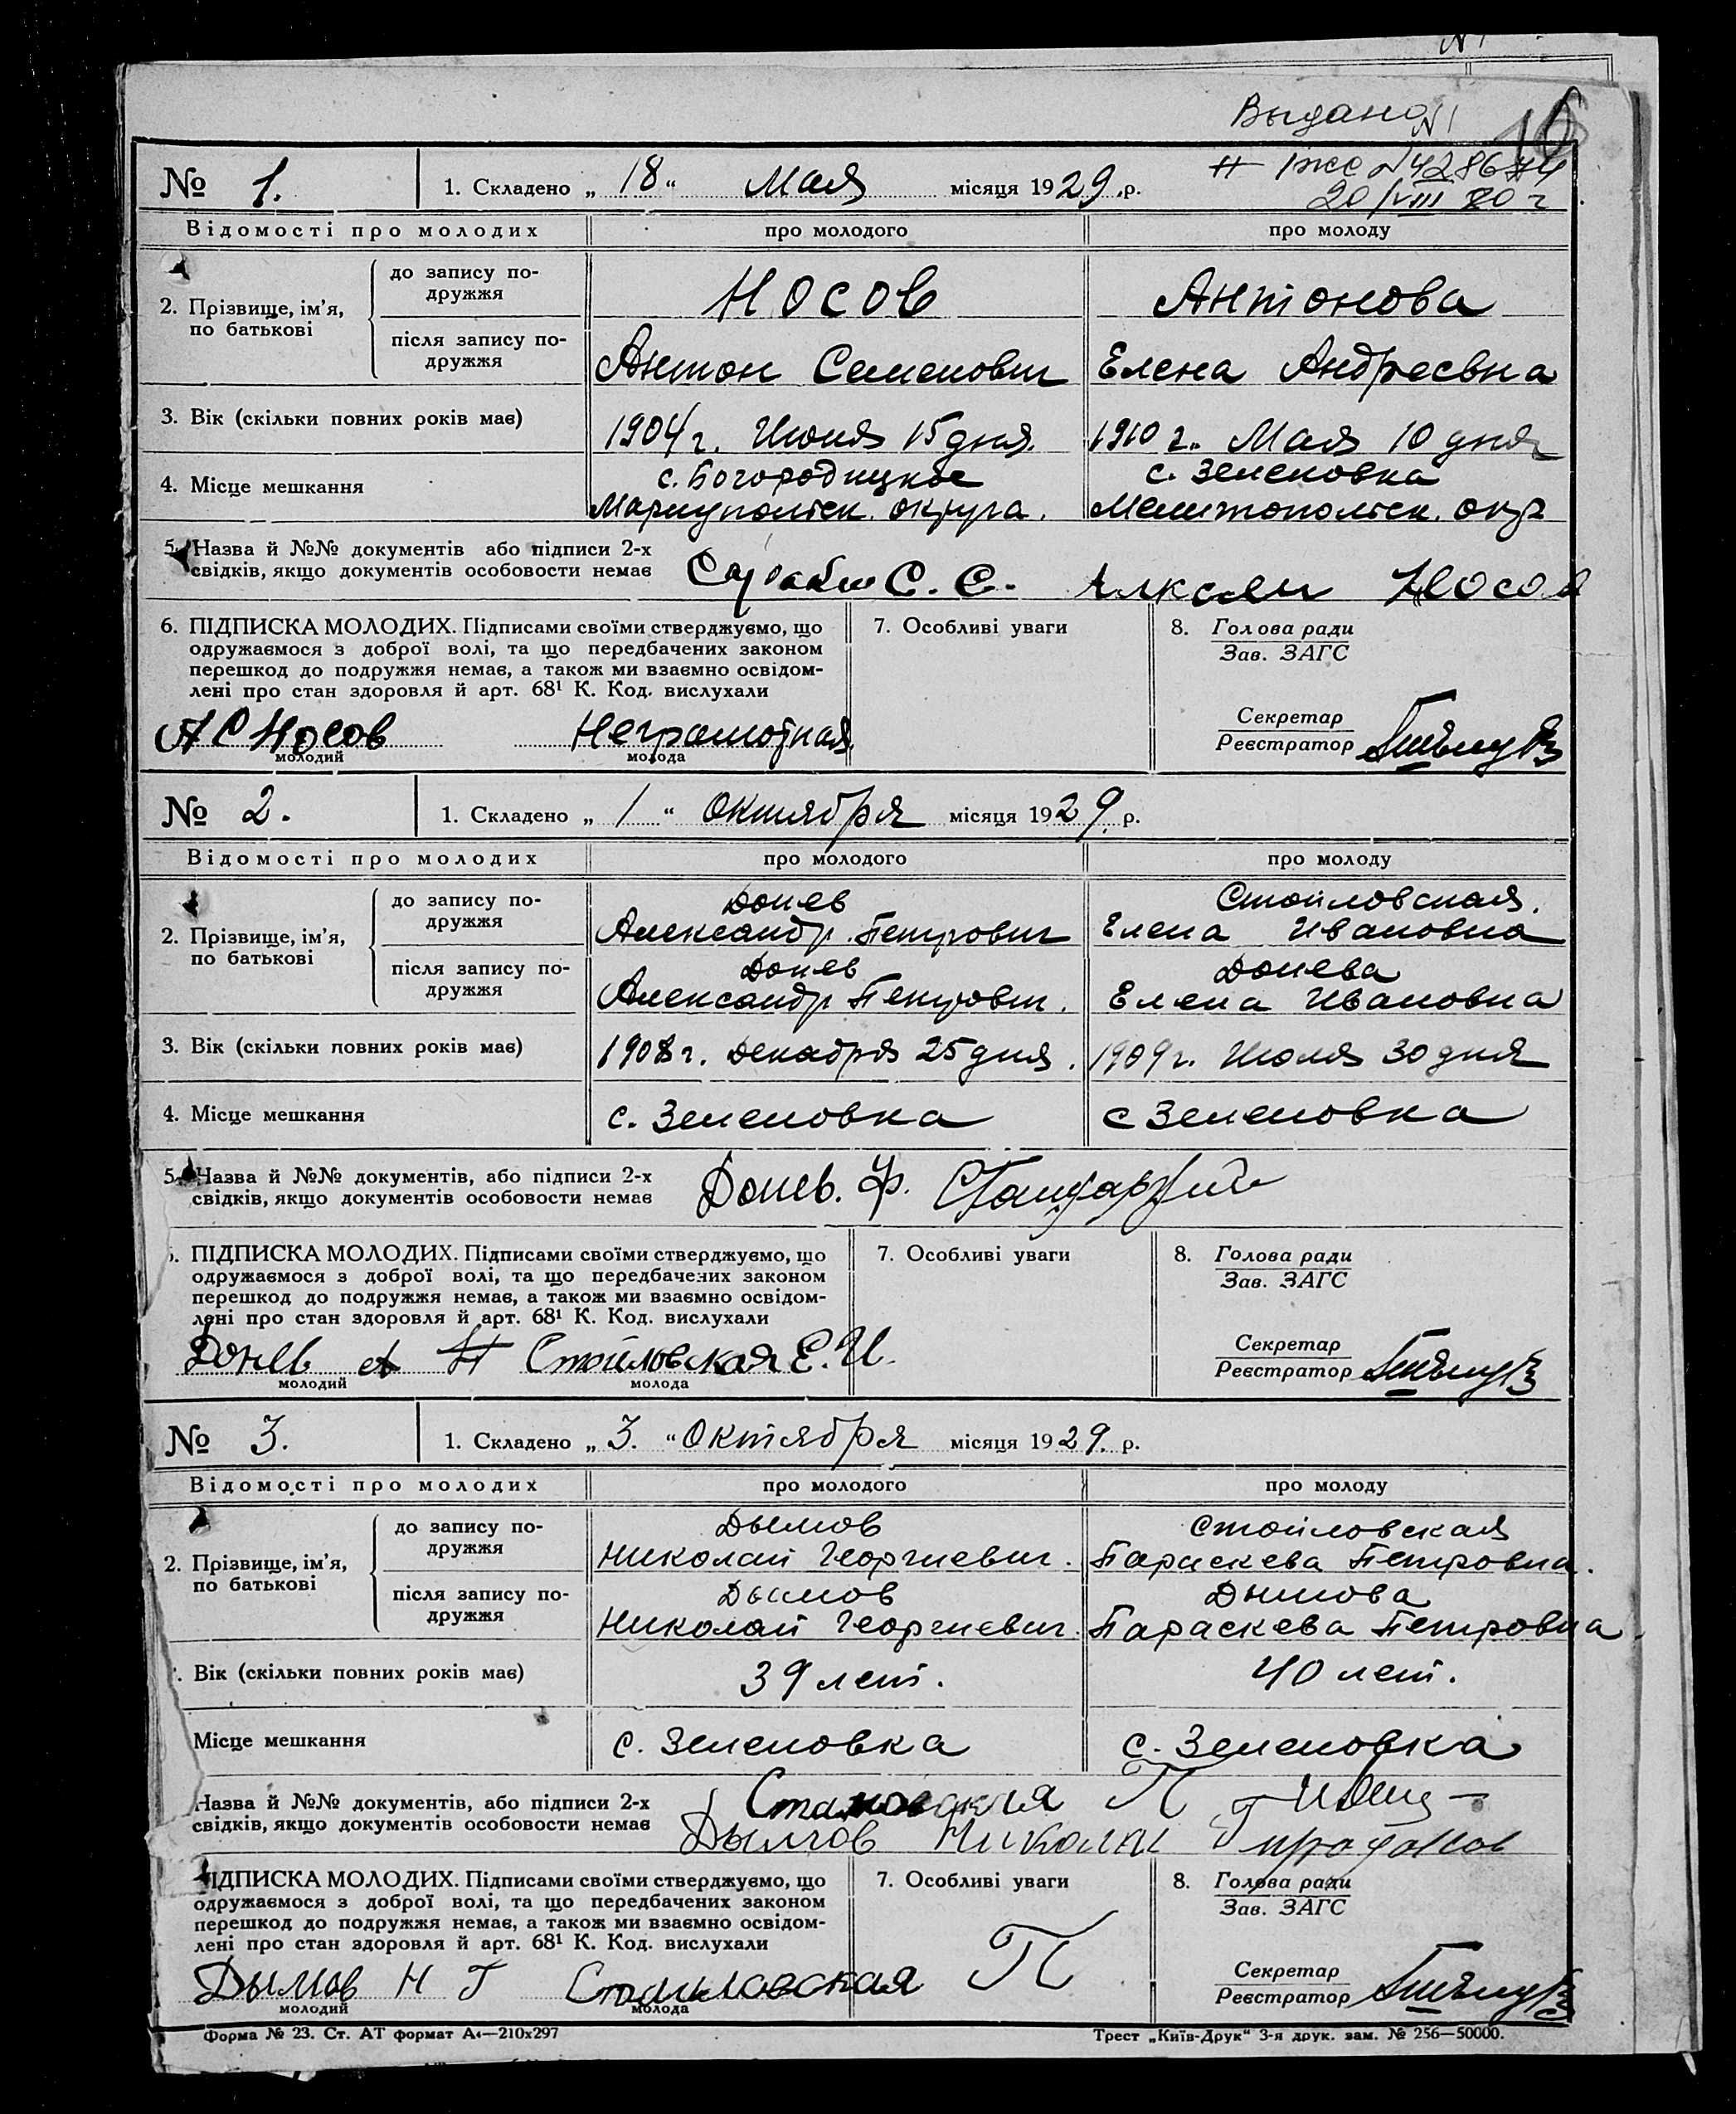 Выдано
№ 1. 1. Складено „ 18 “ Мая місяця 1929 р.
20/VIII 80 г
Відомості про молодих про молодого про молоду
2. Прізвище, ім'я, по батькові
до запису подружжя Носов Антонова
після запису подружжя Антон Семенович Елена Андреевна
3. Вік (скільки повних років має) 1904 г. Июня 15 дня. 1910 г. Мая 10 дня
4. Місце мешкання
с. Богородицкое с. Зеленовка
Мариупольск. округа. Мелитопольск. окр
5. Назва й №№ документів або підписи 2-х
свідків, якщо документів особовости немає
С. С. Носов
6. ПІДПИСКА МОЛОДИХ. Підписами своїми стверджуємо, що 7. Особливі уваги 8. Голова ради
одружаємося з доброї волі, та що передбачених законом Зав. ЗАГС
перешкод до подружжя немає, а також ми взаємно освідом-
лені про стан здоровля й арт. 68¹ К. Код. вислухали
Секретар
А С Носов Неграмотная Реєстратор
молодий молода
№ 2. 1. Складено „ 1 “ Октября місяця 1929. р.
Відомості про молодих про молодого про молоду
2. Прізвище, ім'я, по батькові
до запису подружжя
Донев Стойловская.
Александр Петрович Елена Ивановна
після запису подружжя
Донев Донева
Александр Петрович. Елена Ивановна
3. Вік (скільки повних років має) 1908 г. Декабря 25 дня. 1909 г. Июля 30 дня
4. Місце мешкання с. Зеленовка с Зеленовка
5. Назва й №№ документів, або підписи 2-х
свідків, якщо документів особовости немає
Донев. Ф.
ПІДПИСКА МОЛОДИХ. Підписами своїми стверджуємо, що 7. Особливі уваги 8. Голова ради
одружаємося з доброї волі, та що передбачених законом Зав. ЗАГС
перешкод до подружжя немає, а також ми взаємно освідом-
лені про стан здоровля й арт. 68¹ К. Код. вислухали
Секретар
Донев А П Стойловская Е. И. Реєстратор
молодий молода
№ 3. 1. Складено „ 3. “ Октября місяця 1929. р.
Відомості про молодих про молодого про молоду
2. Прізвище, ім'я, по батькові
до запису подружжя
Дымов Стойловская
Николай Георгиевич. Параскева Петровна.
після запису подружжя
Дымов Дымова
Николай Георгиевич. Параскева Петровна.
Вік (скільки повних років має) 39 лет. 40 лет.
Місце мешкання с. Зеленовка с. Зеленовка
Назва й №№ документів, або підписи 2-х
свідків, якщо документів особовости немає
П
Дымов Николай
ПІДПИСКА МОЛОДИХ. Підписами своїми стверджуємо, що 7. Особливі уваги 8. Голова ради
одружаємося з доброї волі, та що передбачених законом Зав. ЗАГС
перешкод до подружжя немає, а також ми взаємно освідом-
лені про стан здоровля й арт. 68¹ К. Код. вислухали
Секретар
Дымов Н Г Стоиловская П Реєстратор
молодий молода
Форма № 23. Ст. АТ формат А₄—210x297 Трест „Київ-Друк“ 3-я друк. зам. № 256—50000.